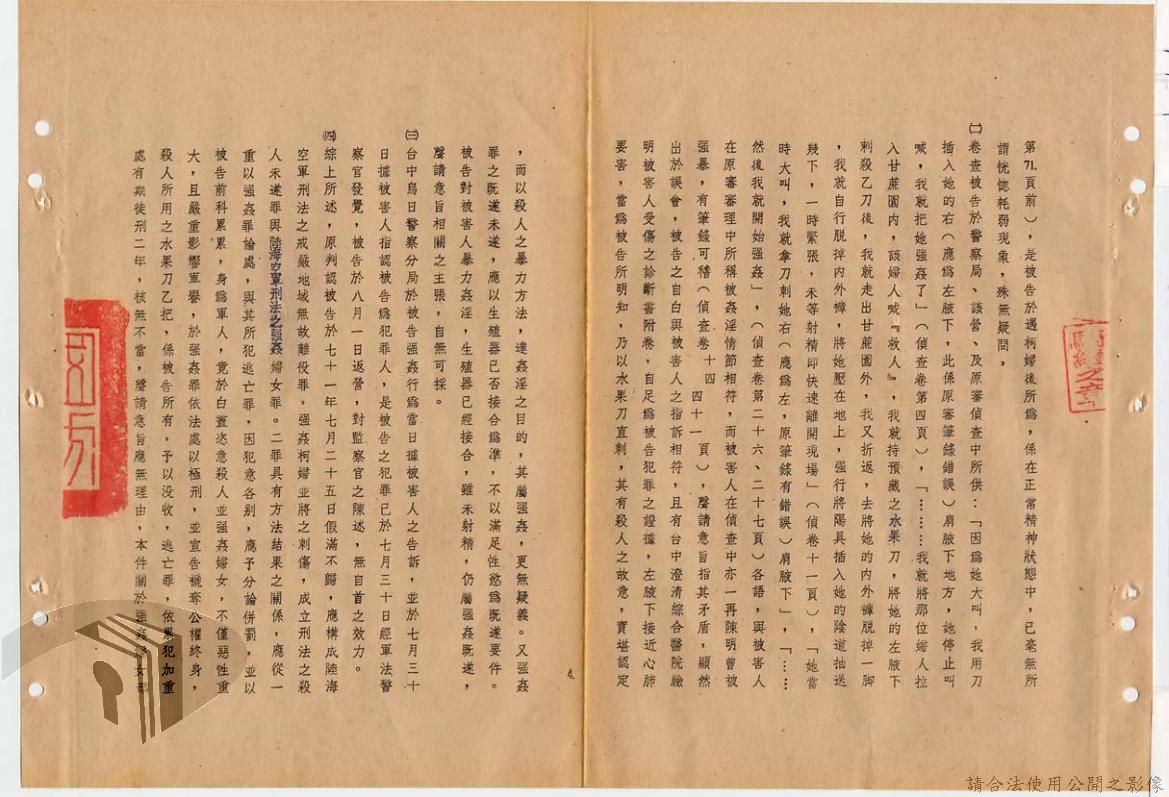 第71.頁前），是被告於遇柯婦後所為，係在正常精神狀態中，已毫無所
謂恍惚耗弱現象，殊無疑問，
㈡卷查被告於警察局、該營、及原審偵查中所供：「因為她大叫，我用刀
插入她的右（應為左腋下，此係原審筆錄錯誤）肩腋下地方，她停止叫
喊，我就把她強姦了」（偵查卷第四頁），「………我就將那位婦人拉
入甘蔗園內，該婦人喊『救人』，我就持預藏之水果刀，將她的左腋下
刺殺乙刀後，我就走出甘蔗園外，我又折返，去將她的內外褲脫掉一腳
，我就自行脫掉內外褲，將她壓在地上，強行將陽具插入她的陰道抽送
幾下，一時緊張，未等射精即快速離開現場」（偵卷十一頁），「她當
時大叫，我就拿刀刺她右（應為左，原筆錄有錯誤）肩腋下」，「……
然後我就開始強姦」，（偵查卷第二十六、二十七頁）各語，與被害人
在原審審理中所稱被姦淫情節相符，而被害人在偵查中亦一再陳明曾被
強暴，有筆錄可稽（偵查卷十四 四十一 頁），聲請意旨指其矛盾，顯然
出於誤會，被告之自白與被害人之指訴相符，且有台中澄清綜合醫院驗
明被害人受傷之診斷書附卷，自足為被告犯罪之證據，左腋下接近心肺
要害，當為被告所明知，乃以水果刀直刺，其有殺人之故意，實堪認定
4.
，而以殺人之暴力方法，達姦淫之目的，其屬強姦，更無疑義。又強姦
罪之既遂未遂，應以生殖器已否接合為準，不以滿足性慾為既遂要件。
被告對被害人暴力姦淫，生殖器已經接合，雖未射精，仍屬強姦既遂，
聲請意旨相關之主張，自無可採。
㈢台中烏日警察分局於被告強姦行為當日據被害人之告訴，並於七月三十
日據被害人指認被告為犯罪人，是被告之犯罪已於七月三十日經軍法警
察官發覺，被告於八月一日返營，對監察官之陳述，無自首之效力。
㈣綜上所述，原判認被告於七十一年七月二十五日假滿不歸，應構成陸海
空軍刑法之戒嚴地域無故離役罪，強姦柯婦並將之刺傷，成立刑法之殺
人未遂罪與陸海空軍刑法之強姦婦女罪。二罪具有方法結果之關係，應從一
重以強姦罪論處，與其所犯逃亡罪，因犯意各別，應予分論併罰，並以
被告前科累累，身為軍人，竟於白晝恣意殺人並強姦婦女，不僅惡性重
大，且嚴重影響軍譽，於強姦罪依法處以極刑，並宣告褫奪公權終身，
殺人所用之水果刀乙把，係被告所有，予以沒收，逃亡罪，依累犯加重
處有期徒刑二年，核無不當，聲請意旨應無理由，本件關於強姦婦女部
請合法使用公開之影像